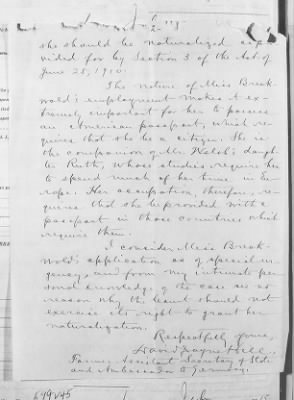 she should be naturalized as pro-
vided for by Section 3 of the Act of
June 25, 1910.
The nature of Miss Break-
wold's employment makes it ex-
tremely important for her to possess
an American passport, which re-
quires that she be a citizen. She is
the companion of Mr. Walsh's daugh-
ter Ruth, whose studies require her
to spend much of her time in Eu-
rope. Her occupation, therefore, re-
quires that she be provided with a
passport in those countries which
require them.
I consider Miss Break-
wold's application as of special ur-
gency, and from my intimate per-
sonal knowledge of the case see no
reason why the Court should not
exercise its right to grant her
naturalization.
Respectfully yours,
David Jayne Hill,
Former Assistant Secretary of State
and Ambassador to Germany.